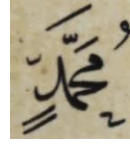 مُحَمَّدٍ